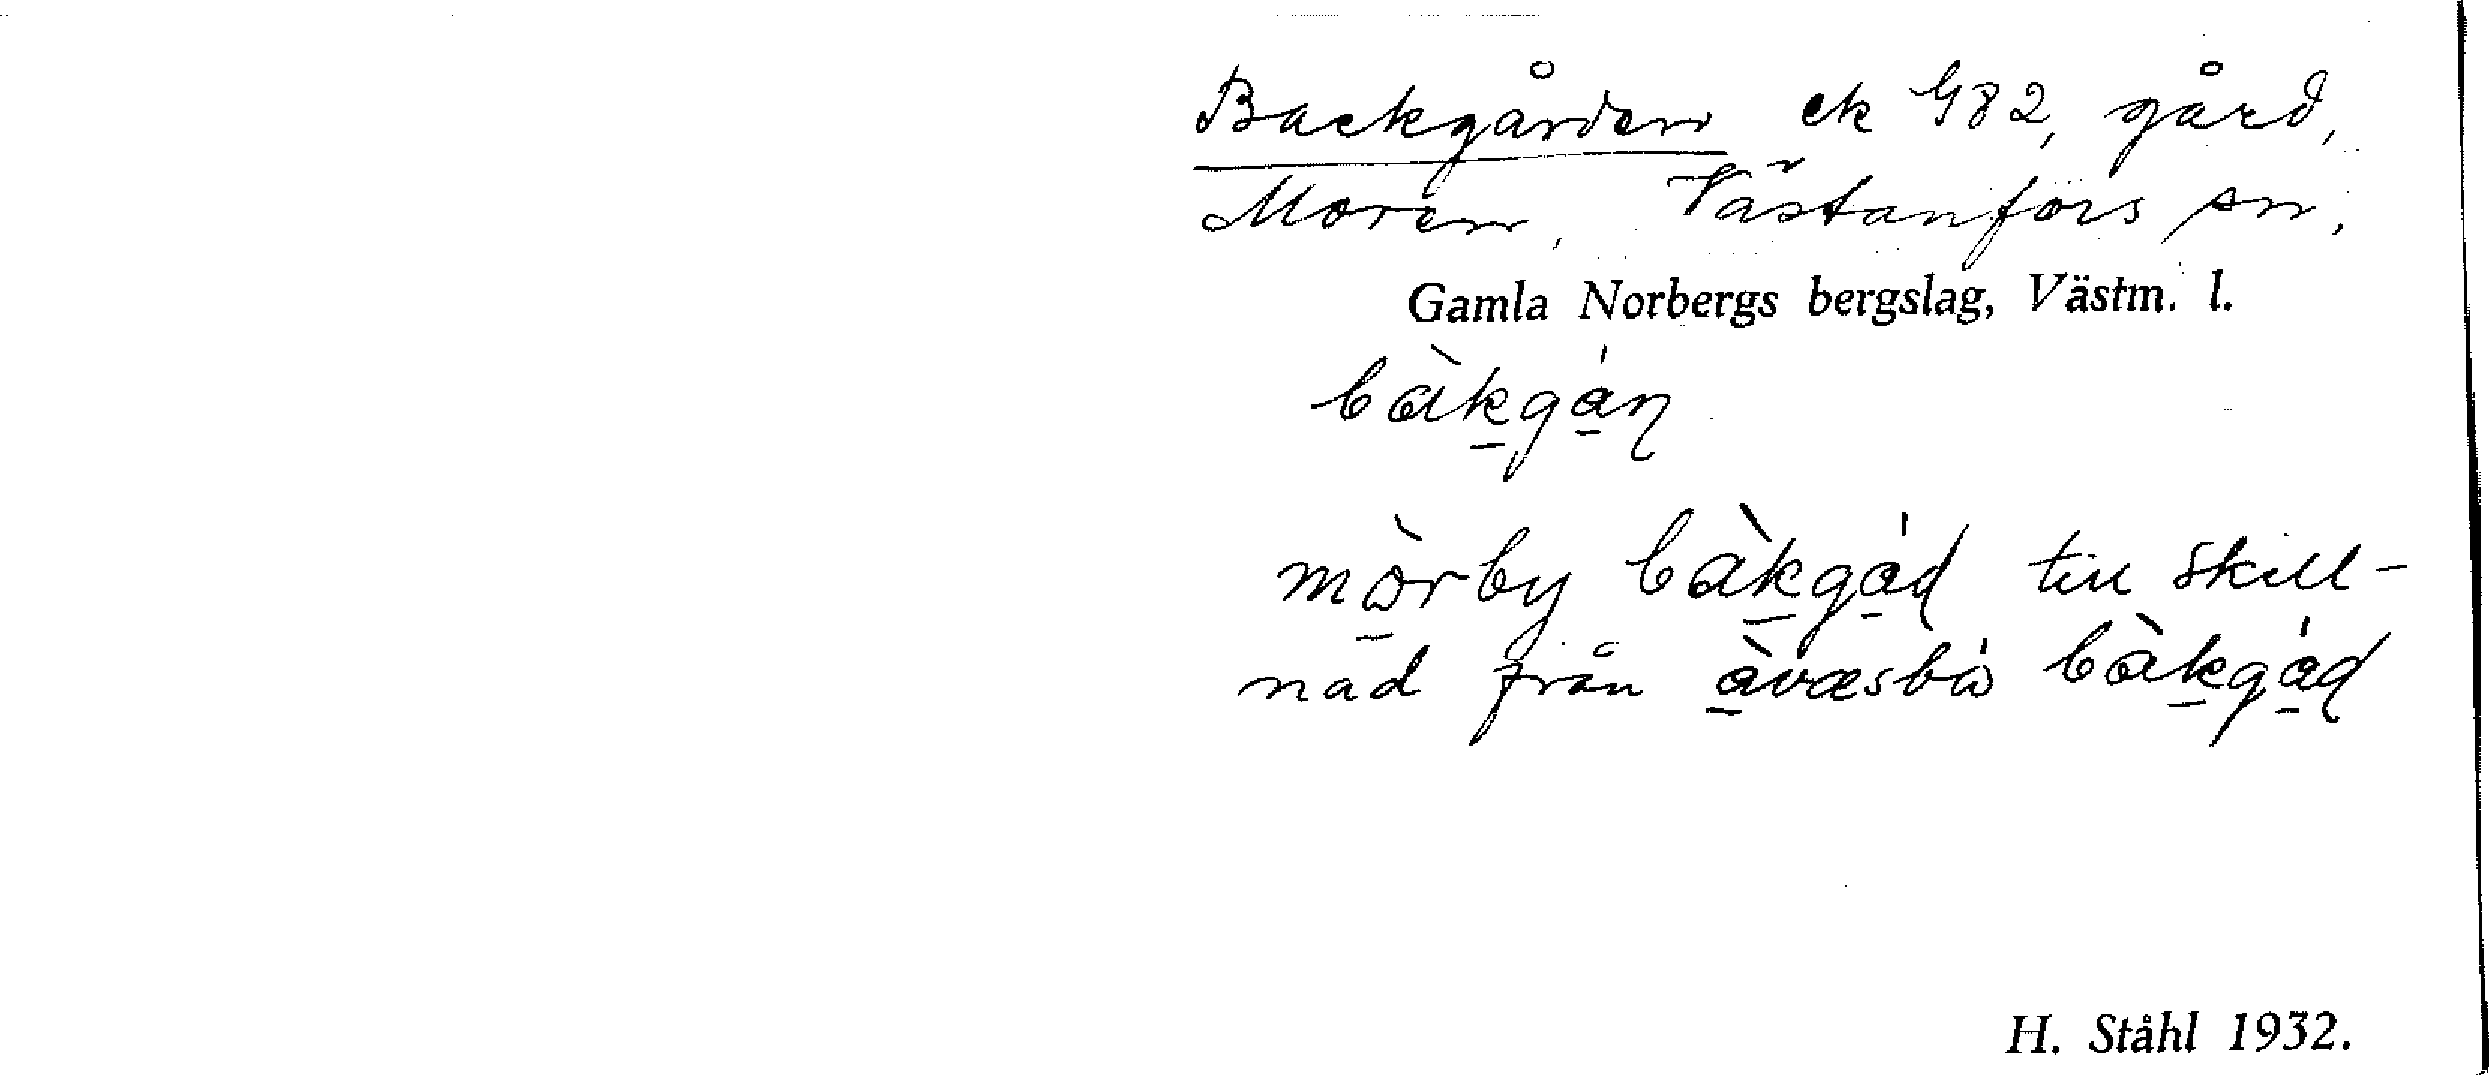 Backgården ek 982, gård,
Moren, Västanfors sn,
Gamla Norbergs bergslag, Västm. l.
bàkgán
mòrby bàkgád till skill-
nad från àvæsbó bàkgád
H. Ståhl 1932.